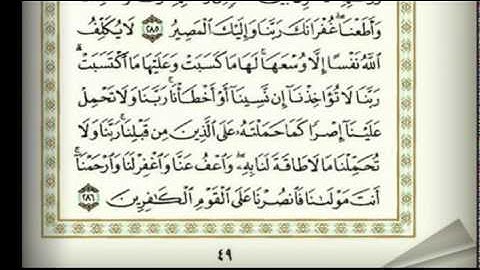 وَأَطَعْنَا ۖ غُفْرَانَكَ رَبَّنَا وَإِلَيْكَ الْمَصِيرُ ﴿٢٨٥﴾ لَا يُكَلِّفُ
اللَّهُ نَفْسًا إِلَّا وُسْعَهَا ۚ لَهَا مَا كَسَبَتْ وَعَلَيْهَا مَا اكْتَسَبَتْ ۗ
رَبَّنَا لَا تُؤَاخِذْنَا إِن نَّسِينَا أَوْ أَخْطَأْنَا ۚ رَبَّنَا وَلَا تَحْمِلْ
عَلَيْنَا إِصْرًا كَمَا حَمَلْتَهُ عَلَى الَّذِينَ مِن قَبْلِنَا ۚ رَبَّنَا وَلَا
تُحَمِّلْنَا مَا لَا طَاقَةَ لَنَا بِهِ ۖ وَاعْفُ عَنَّا وَاغْفِرْ لَنَا وَارْحَمْنَا ۚ
أَنتَ مَوْلَانَا فَانصُرْنَا عَلَى الْقَوْمِ الْكَافِرِينَ ﴿٢٨٦﴾
٤٩